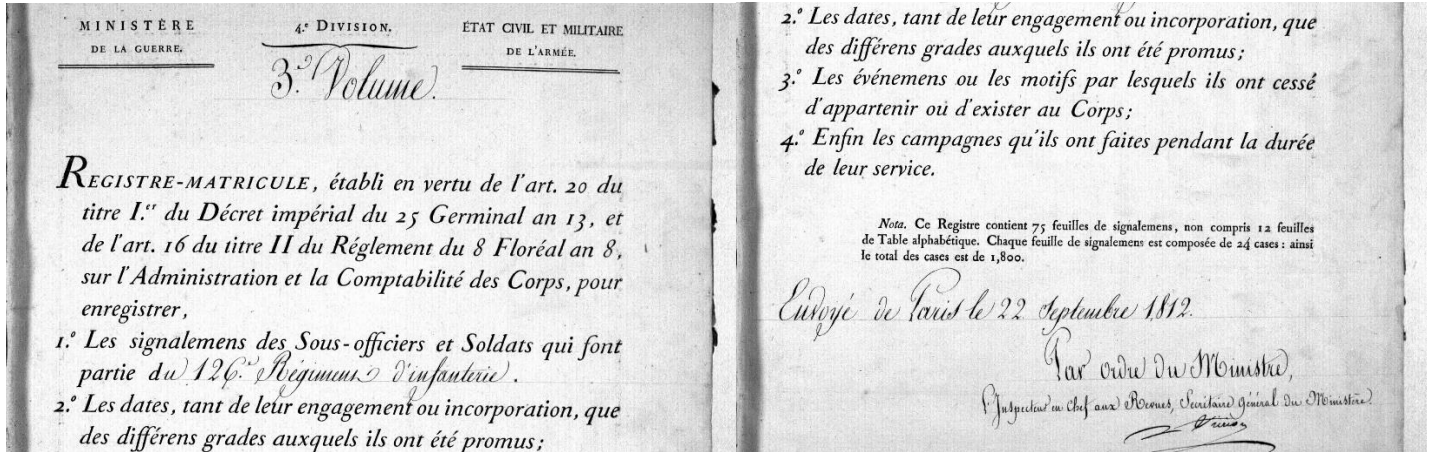 MINISTÈRE
DE LA GUERRE.
4.e DIVISION.
ÉTAT CIVIL ET MILITAIRE
DE L'ARMÉE.
3.e Volume.
REGISTRE-MATRICULE, établi en vertu de l'art. 20 du
titre I.er du Décret impérial du 25 Germinal an 13, et
de l'art. 16 du titre II du Réglement du 8 Floréal an 8,
sur l'Administration et la Comptabilité des Corps, pour
enregistrer,
1.º Les signalemens des Sous-officiers et Soldats qui font
partie du 126.e Régiment d'infanterie.
2.º Les dates, tant de leur engagement ou incorporation, que
des différens grades auxquels ils ont été promus;
2.º Les dates, tant de leur engagement ou incorporation, que
des différens grades auxquels ils ont été promus;
3.º Les événemens ou les motifs par lesquels ils ont cessé
d'appartenir ou d'exister au Corps;
4.º Enfin les campagnes qu'ils ont faites pendant la durée
de leur service.
Nota. Ce Registre contient 75 feuilles de signalemens, non compris 12 feuilles
de Table alphabétique. Chaque feuille de signalemens est composée de 24 cases: ainsi
le total des cases est de 1,800.
Envoyé de Paris le 22 Septembre 1812.
Par ordre du Ministre,
l'Inspecteur en Chef aux Revues, Secrétaire Général du Ministère.